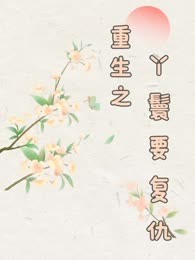 重生之
丫鬟要复仇